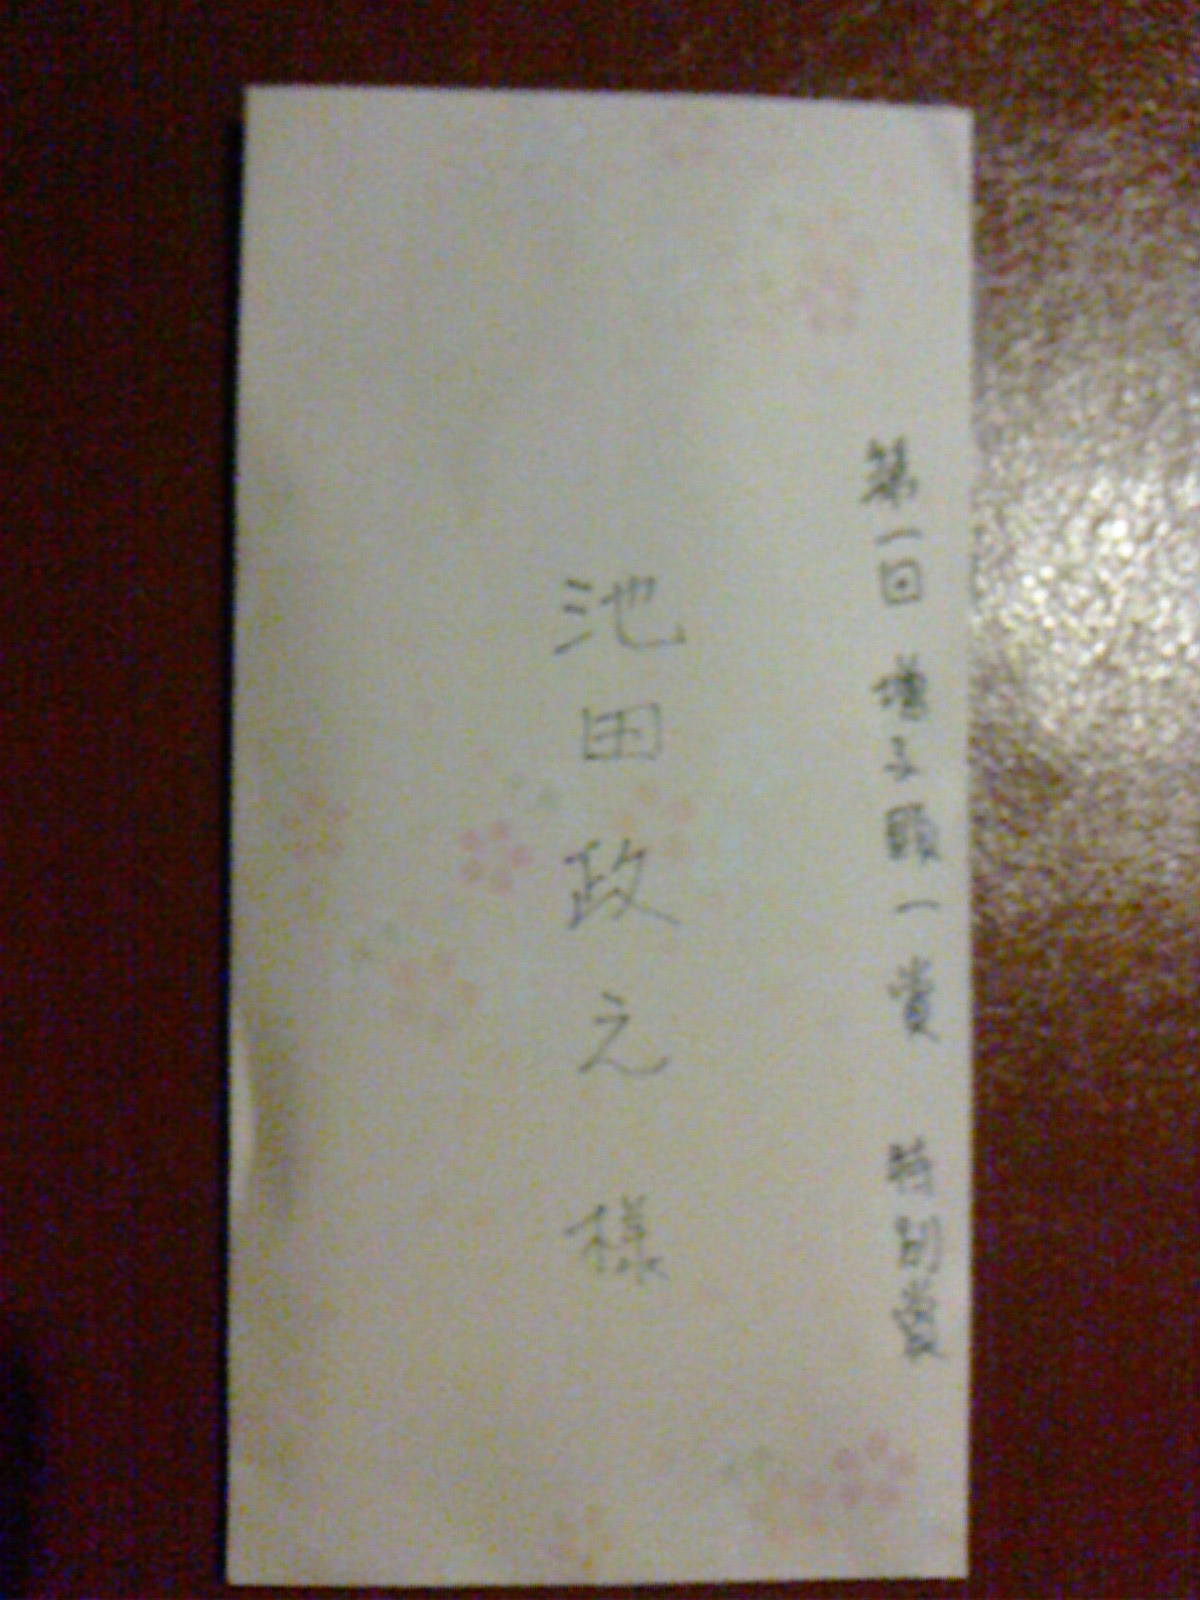 第一回 増子頤一賞 特別賞
池田政之 様